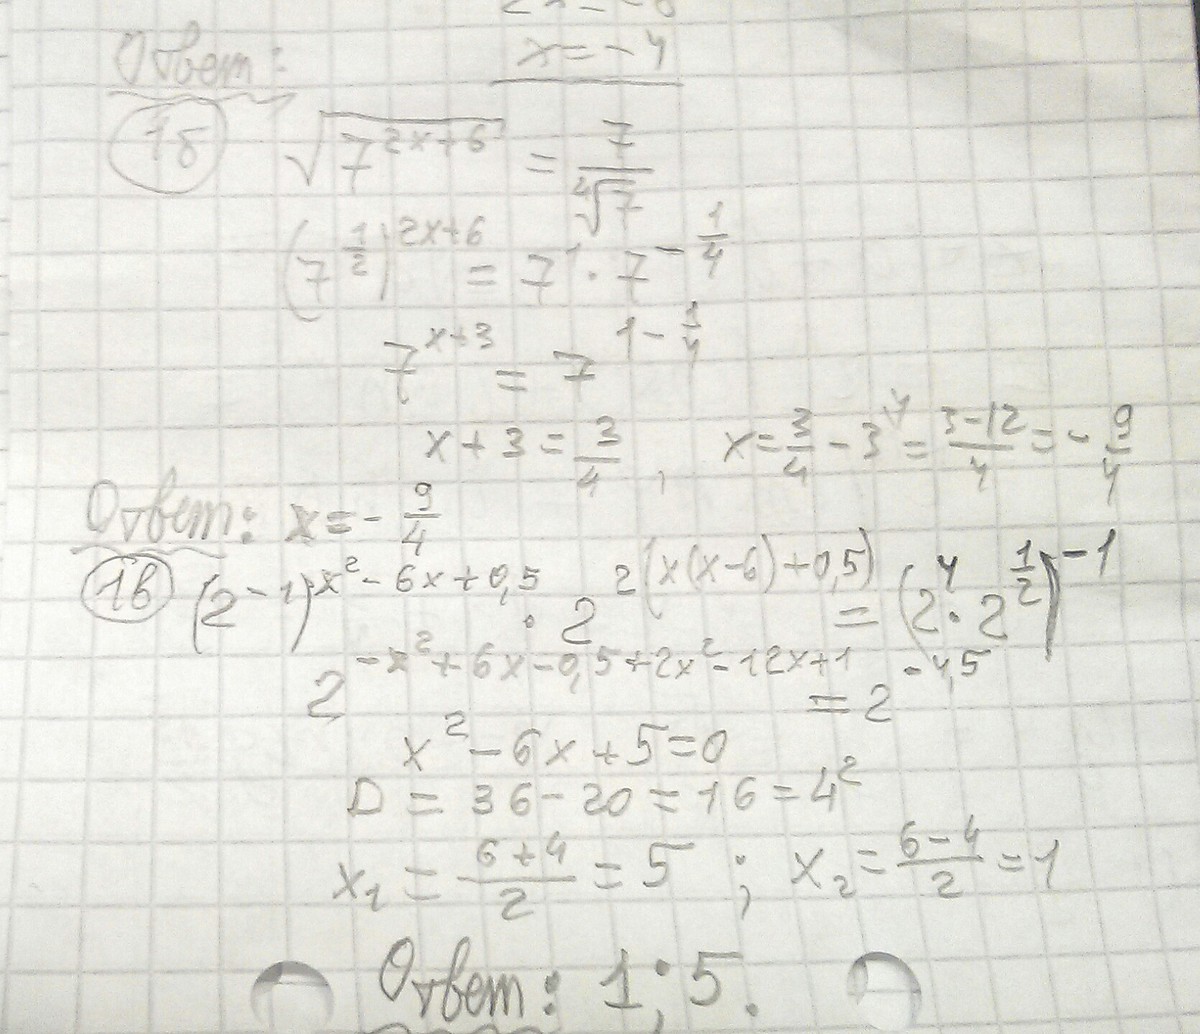 x = -4
Ответ:
1б √(7^(2x+6)) = 7/⁴√7
(7^(1/2))^(2x+6) = 7¹ · 7^(-1/4)
7^(x+3) = 7^(1-1/4)
x + 3 = 3/4, x = 3/4 - 3^4 = (3-12)/4 = -9/4
Ответ: x = -9/4
1в (2^(-1))^(x²-6x+0,5) · 2^(2(x(x-6)+0,5)) = (2^4 · 2^(1/2))^(-1)
2^(-x²+6x-0,5+2x²-12x+1) = 2^(-4,5)
x² - 6x + 5 = 0
D = 36 - 20 = 16 = 4²
x₁ = (6+4)/2 = 5 ; x₂ = (6-4)/2 = 1
Ответ: 1; 5.